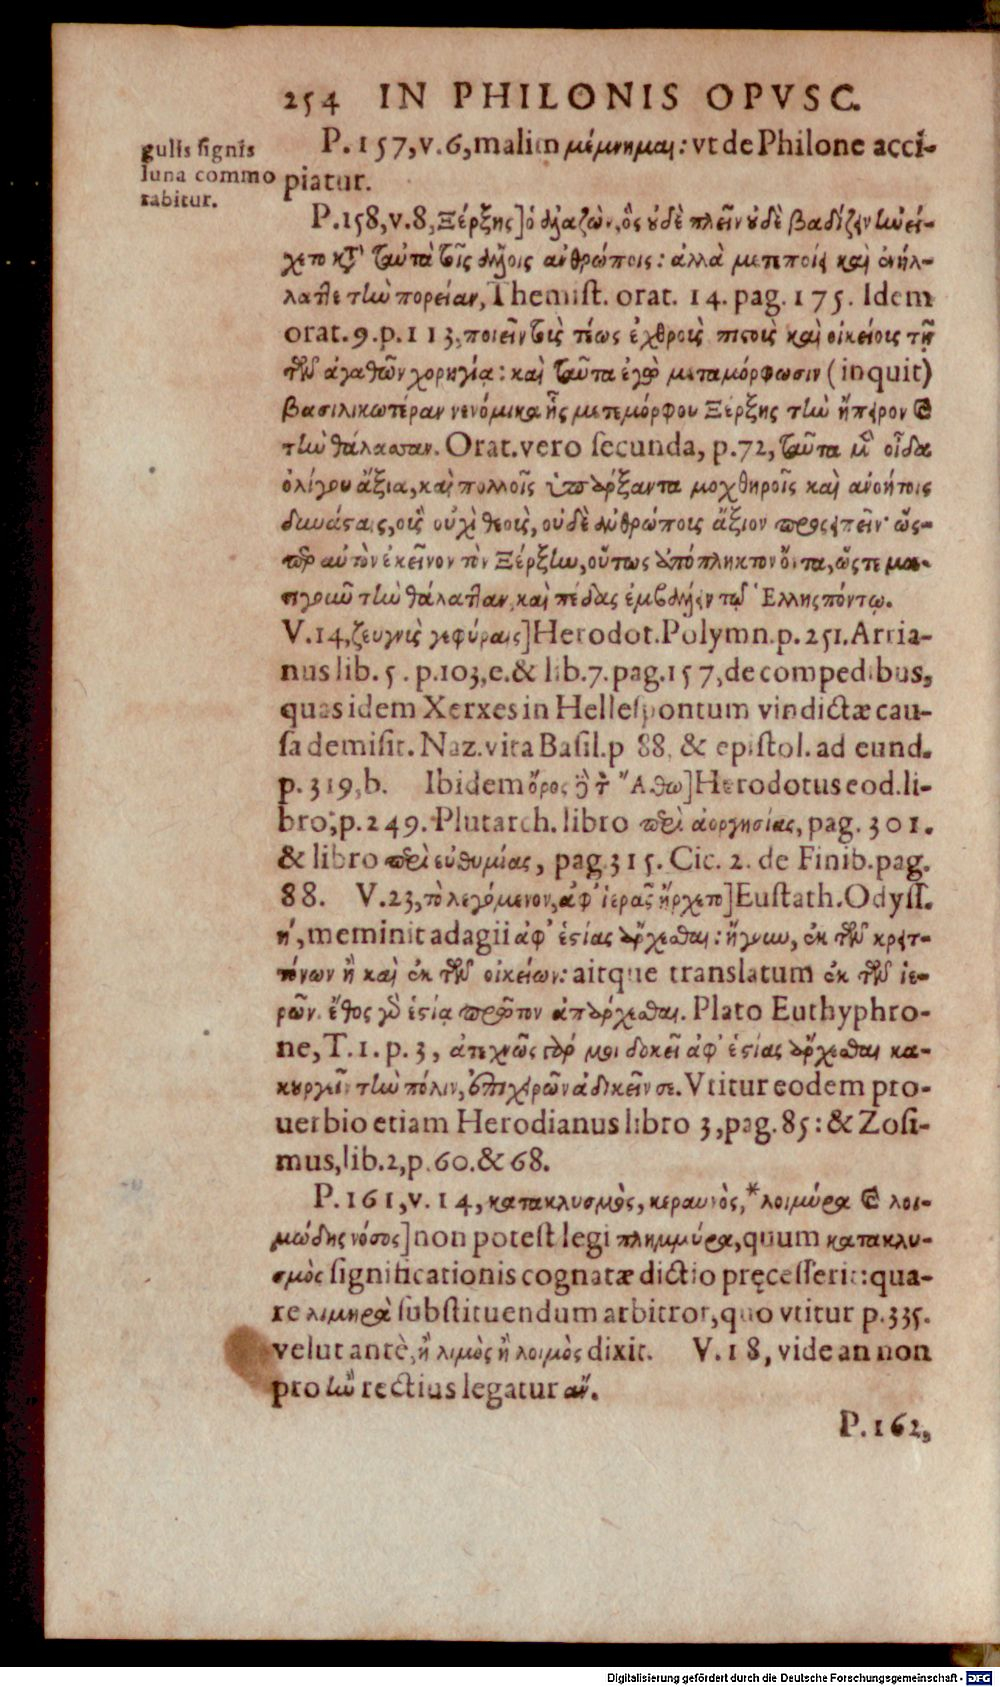 254 IN PHILONIS OPVSC.
gulis signis
luna commo
rabitur.
P. 157, v. 6, malim μέμνημαι: vt de Philone acci-
piatur.
P. 158, v. 8, Ξέρξης] ὁ ἀλαζὼν, ὃς οὐδὲ πλεῖν οὐδὲ βαδίζειν ἠνεί-
χετο κατὰ ταὐτὰ τοῖς ἄλλοις ἀνθρώποις: ἀλλὰ μετεποίει καὶ ἐνήλ-
λαττε τὴν πορείαν, Themist. orat. 14. pag. 175. Idem
orat. 9. p. 113, ποιεῖν τοὺς τέως ἐχθροὺς πιστοὺς καὶ οἰκείους τῇ
τῶν ἀγαθῶν χορηγίᾳ: καὶ ταῦτα ἐγὼ μεταμόρφωσιν (inquit)
βασιλικωτέραν νενόμικα ἧς μετεμόρφου Ξέρξης τὴν ἤπειρον καὶ
τὴν θάλασσαν. Orat. vero secunda, p. 72, ταῦτα μὲν οἶδα
ὀλίγου ἄξια, καὶ πολλοῖς ὑπάρξαντα μοχθηροῖς καὶ ἀνοήτοις
δυνάσταις, οὓς οὐχὶ θεοὺς, οὐδὲ ἀνθρώπους ἄξιον προσειπεῖν· ὥς-
περ αὐτὸν ἐκεῖνον τὸν Ξέρξην, οὕτως ἀπόπληκτον ὄντα, ὥςτε μα-
στιγοῦν τὴν θάλατταν, καὶ πέδας ἐμβάλλειν τῷ Ἑλληςπόντῳ.
V. 14, ζευγνὺς γεφύραις] Herodot. Polymn. p. 251. Arria-
nus lib. 5. p. 103, e. & lib. 7. pag. 157, de compedibus,
quas idem Xerxes in Hellespontum vindictæ cau-
sa demisit. Naz. vita Basil. p 88, & epistol. ad eund.
p. 319, b. Ibidem ὄρος δὲ τὸν Ἄθω] Herodotus eod. li-
bro, p. 249. Plutarch. libro περὶ ἀοργησίας, pag. 301.
& libro περὶ εὐθυμίας, pag 315. Cic. 2. de Finib. pag.
88. V. 23, τὸ λεγόμενον, ἀφ' ἱερᾶς ἤρχετο] Eustath. Odyss.
η', meminit adagii ἀφ' ἑστίας ἄρχεσθαι: ἤγουν, ἐκ τῶν κρειτ-
τόνων ἢ καὶ ἐκ τῶν οἰκείων: aitque translatum ἐκ τῶν ἱε-
ρῶν. ἔθος γὰρ ἑστίᾳ πρῶτον ἀπάρχεσθαι. Plato Euthyphro-
ne, T. 1. p. 3, ἀτεχνῶς γάρ μοι δοκεῖ ἀφ' ἑστίας ἄρχεσθαι κα-
κουργεῖν τὴν πόλιν, ἐπιχειρῶν ἀδικεῖν σε. Vtitur eodem pro-
uerbio etiam Herodianus libro 3, pag. 85: & Zosi-
mus, lib. 2, p. 60. & 68.
P. 161, v. 14, κατακλυσμὸς, κεραυνὸς, *λοιμύρα καὶ λοι-
μώδης νόσος] non potest legi πλημμύρα, quum κατακλυ-
σμὸς significationis cognatæ dictio pręcesserit: qua-
re λιμηρὰ substituendum arbitror, quo vtitur p. 335.
velut antè, ἢ λιμὸς ἢ λοιμὸς dixit. V. 18, vide an non
pro ἦν rectius legatur ἄν.
P. 162,
Digitalisierung gefördert durch die Deutsche Forschungsgemeinschaft - DFG